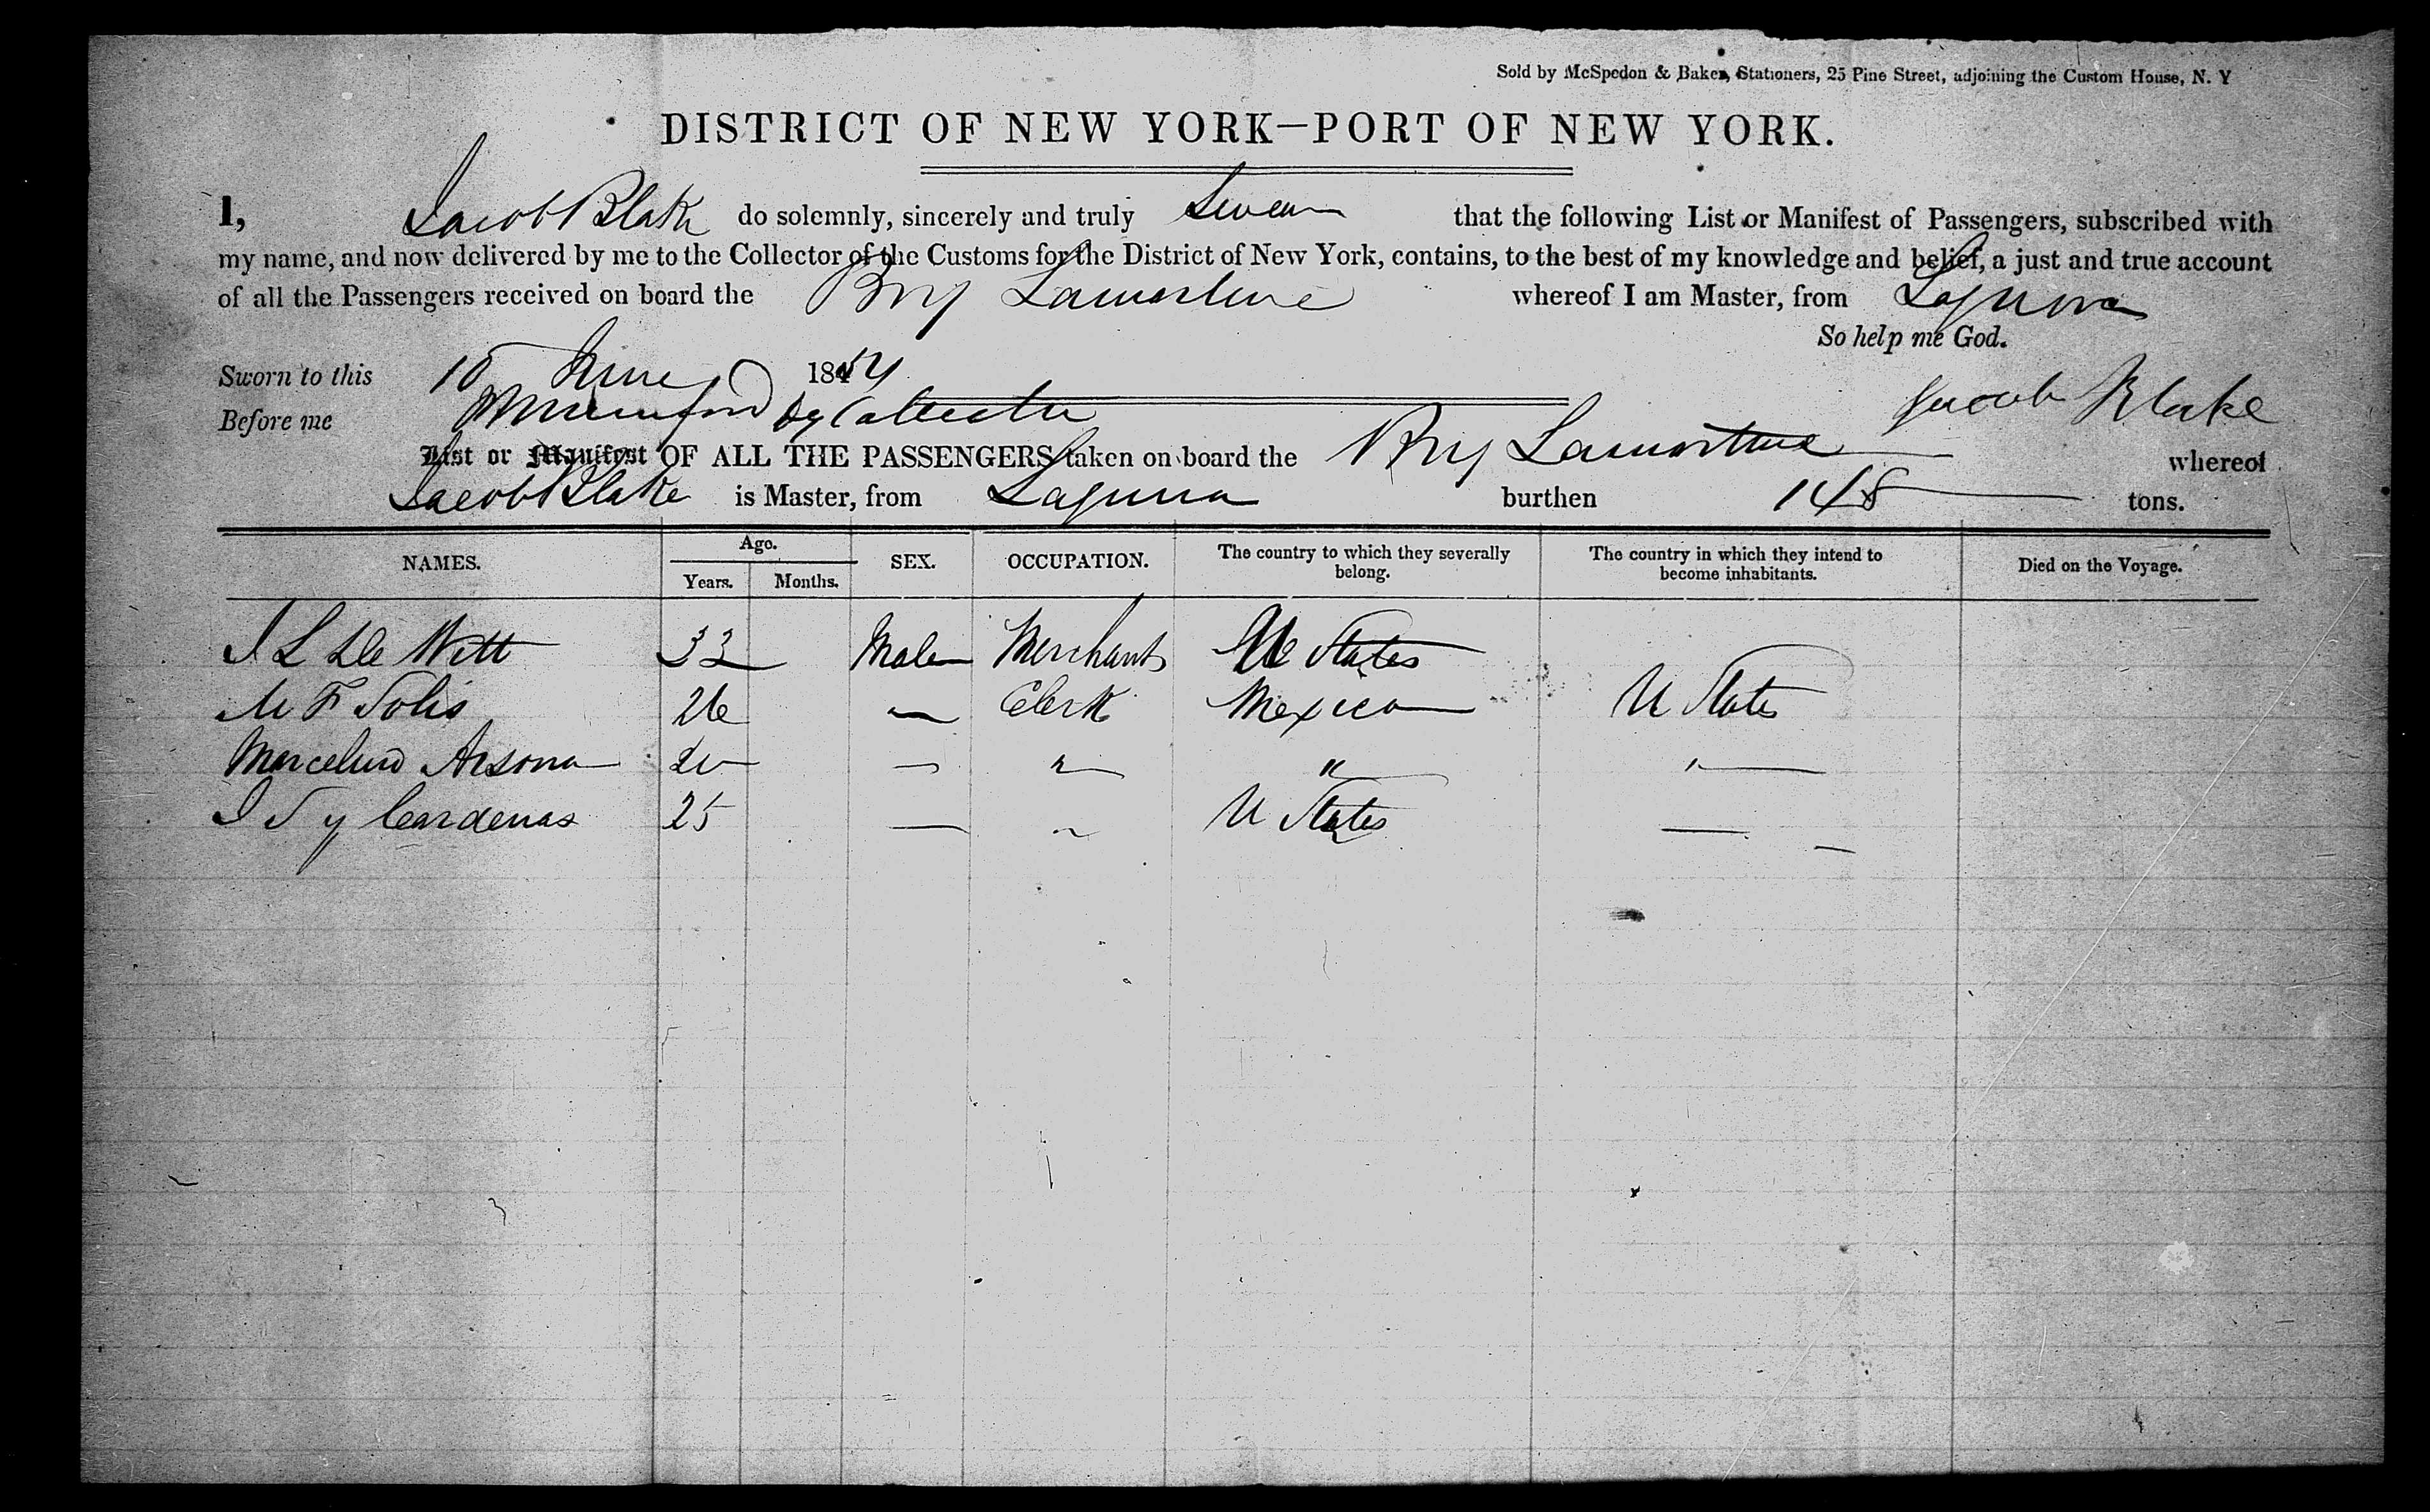 Sold by McSpedon & Baker, Stationers, 25 Pine Street, adjoining the Custom House, N. Y
DISTRICT OF NEW YORK—PORT OF NEW YORK.
I, Jacob Blake do solemnly, sincerely and truly Swear that the following List or Manifest of Passengers, subscribed with
my name, and now delivered by me to the Collector of the Customs for the District of New York, contains, to the best of my knowledge and belief, a just and true account
of all the Passengers received on board the Brig Lamartine whereof I am Master, from Laguna
So help me God.
Sworn to this 10 June 1854
Jacob Blake
Before me Dy Collector
List or Manifest OF ALL THE PASSENGERS taken on board the Brig Lamartine whereof
Jacob Blake is Master, from Laguna burthen 148 tons.
NAMES. Age. Years. Months. SEX. OCCUPATION. The country to which they severally belong. The country in which they intend to become inhabitants. Died on the Voyage.
J L De Witt 33 Male Merchant U States
M F Solis 26 — Clerk Mexico U States
Marcelino 20 — " " "
J S y Cardenas 25 — " U States —